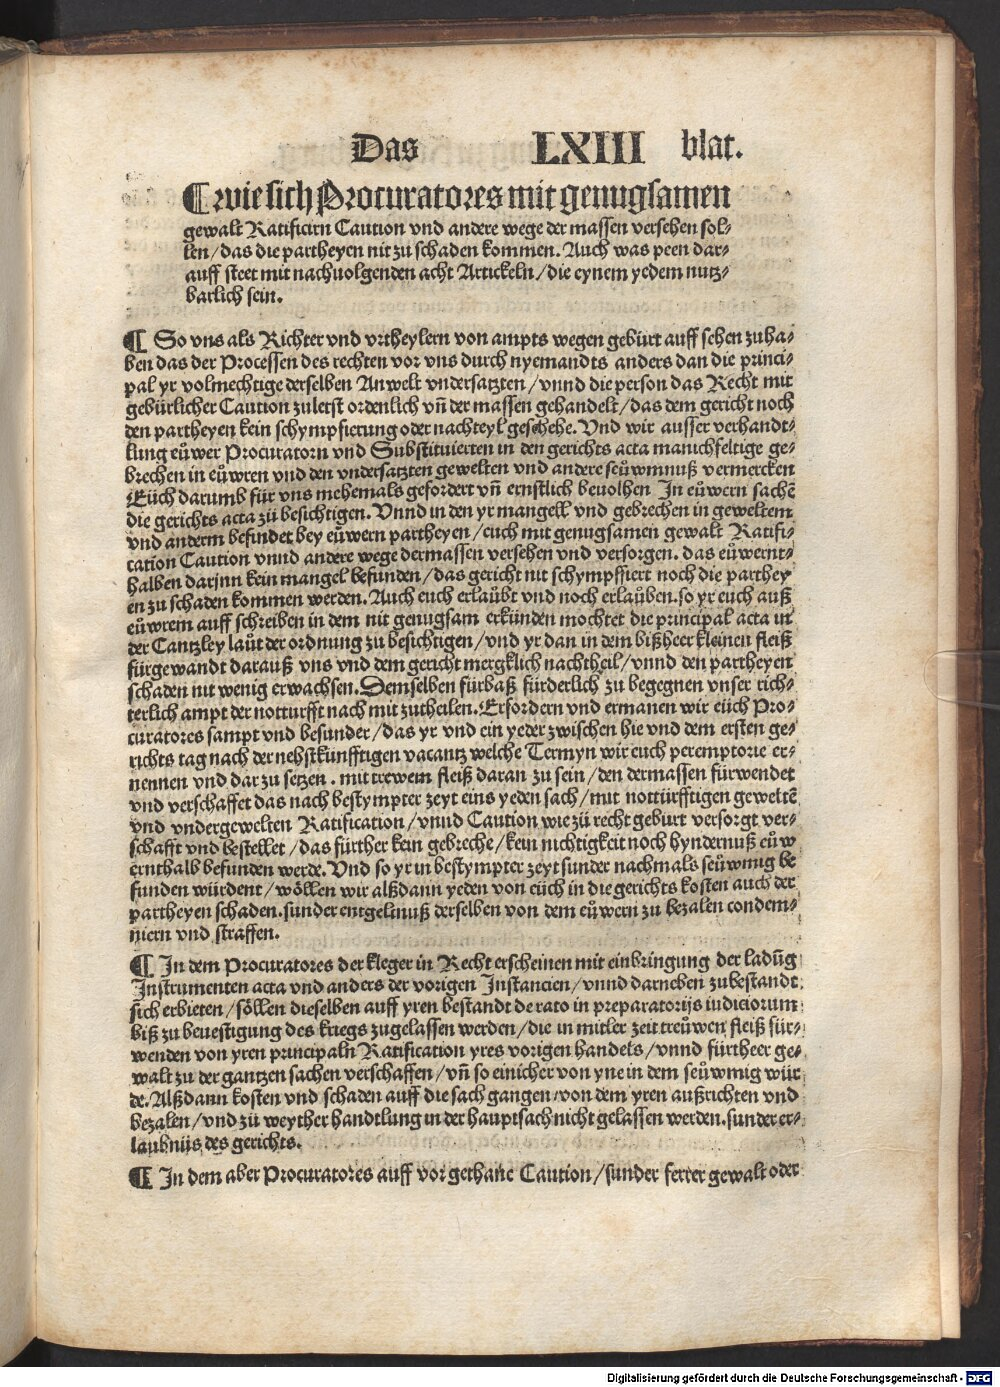 Das LXIII blat.
¶ wie sich Procuratores mit genugsamen
gewalt Ratificirn Caution vnd andere wege der massen versehen sol⸗
len / das die partheyen nit zu schaden kommen. Auch was peen dar⸗
auff steet mit nachuolgenden acht Artickeln / die eynem yedem nutz⸗
barlich sein.
¶ So vns als Richter vnd vrtheylern von ampts wegen gebürt auff sehen zuha⸗
ben das der Processen des rechten vor vns durch nyemandts anders dan die princi⸗
pal yr volmechtige derselben Anwelt vndersatzten / vnnd die person das Recht mit
gebürlicher Caution zuletst ordenlich vn̄ der massen gehandelt / das dem gericht noch
den partheyen kein schympfierung oder nachteyl geschehe. Vnd wir ausser verhandt⸗
lung eůwer Procuratorn vnd Substituierten in den gerichts acta manichfeltige ge⸗
brechen in eůwren vnd den vndersatzten gewelten vnd andere seůwmnuß vermercken
Eůch darumb für vns mehemals gefordert vn̄ ernstlich beuolhen In eůwern sachē
die gerichts acta zů besichtigen. Vnnd in den yr mangell vnd gebrechen in geweltem
vnd anderm befindet bey eůwern partheyen / euch mit genugsamen gewalt Ratifi⸗
cation Caution vnnd andere wege dermassen versehen vnd versorgen. das eůwernt⸗
halben darjnn kein mangel befunden / das gericht nit schympffiert noch die parthey
en zu schaden kommen werden. Auch euch erlaůbt vnd noch erlaůben. so yr euch auß
eůwrem auff schreiben in dem nit genugsam erkünden mochtet die principal acta in
der Cantzley laůt der ordnung zu besichtigen / vnd yr dan in dem bißheer kleinen fleiß
fürgewandt darauß vns vnd dem gericht mergklich nachtheil / vnnd den partheyen
schaden nit wenig erwachsen. Demselben fürbaß fürderlich zu begegnen vnser rich⸗
terlich ampt der notturfft nach mit zutheilen. Erfordern vnd ermanen wir eüch Pro⸗
curatores sampt vnd besunder / das yr vnd ein yeder zwischen hie vnd dem ersten ge⸗
richts tag nach der nehstkünfftigen vacantz welche Termyn wir euch peremptorie er⸗
nennen vnd dar zu setzen . mit trewem fleiß daran zu sein / den dermassen fürwendet
vnd verschaffet das nach bestympter zeyt eins yeden sach / mit nottürfftigen geweltē
vnd vndergewelten Ratification / vnnd Caution wie zů recht geburt versorgt ver⸗
schafft vnd bestellet / das fürther kein gebreche / kein nichtigkeit noch hyndernuß eůw
ernthalb befunden werde. Vnd so yr in bestympter zeyt sunder nachmals seůwmig be
funden würdent / wöllen wir alßdann yeden von eüch in die gerichts kosten auch der
partheyen schaden. sunder entgeltnuß derselben von dem eůwern zu bezalen condem⸗
niern vnd straffen.
¶ In dem Procuratores der kleger in Recht erscheinen mit einbringung der ladūg
Instrumenten acta vnd anders der vorigen Instancien / vnnd darneben zubestandt
sich erbieten / söllen dieselben auff yren bestandt de rato in preparatorijs iudiciorum
biß zu beuestigung des kriegs zugelassen werden / die in mitler zeit treůwen fleiß für⸗
wenden von yren principaln Ratification yres vorigen handels / vnnd fürtheer ge⸗
walt zu der gantzen sachen verschaffen / vn̄ so einicher von yne in dem seůwmig wür
de. Alßdann kosten vnd schaden auff die sach gangen / von dem yren außrichten vnd
bezalen / vnd zů weyther handtlung in der hauptsach nicht gelassen werden. sunder er⸗
laubnijs des gerichts.
¶ In dem aber Procuratores auff vor gethane Caution / sunder ferrer gewalt oder
Digitalisierung gefördert durch die Deutsche Forschungsgemeinschaft - DFG